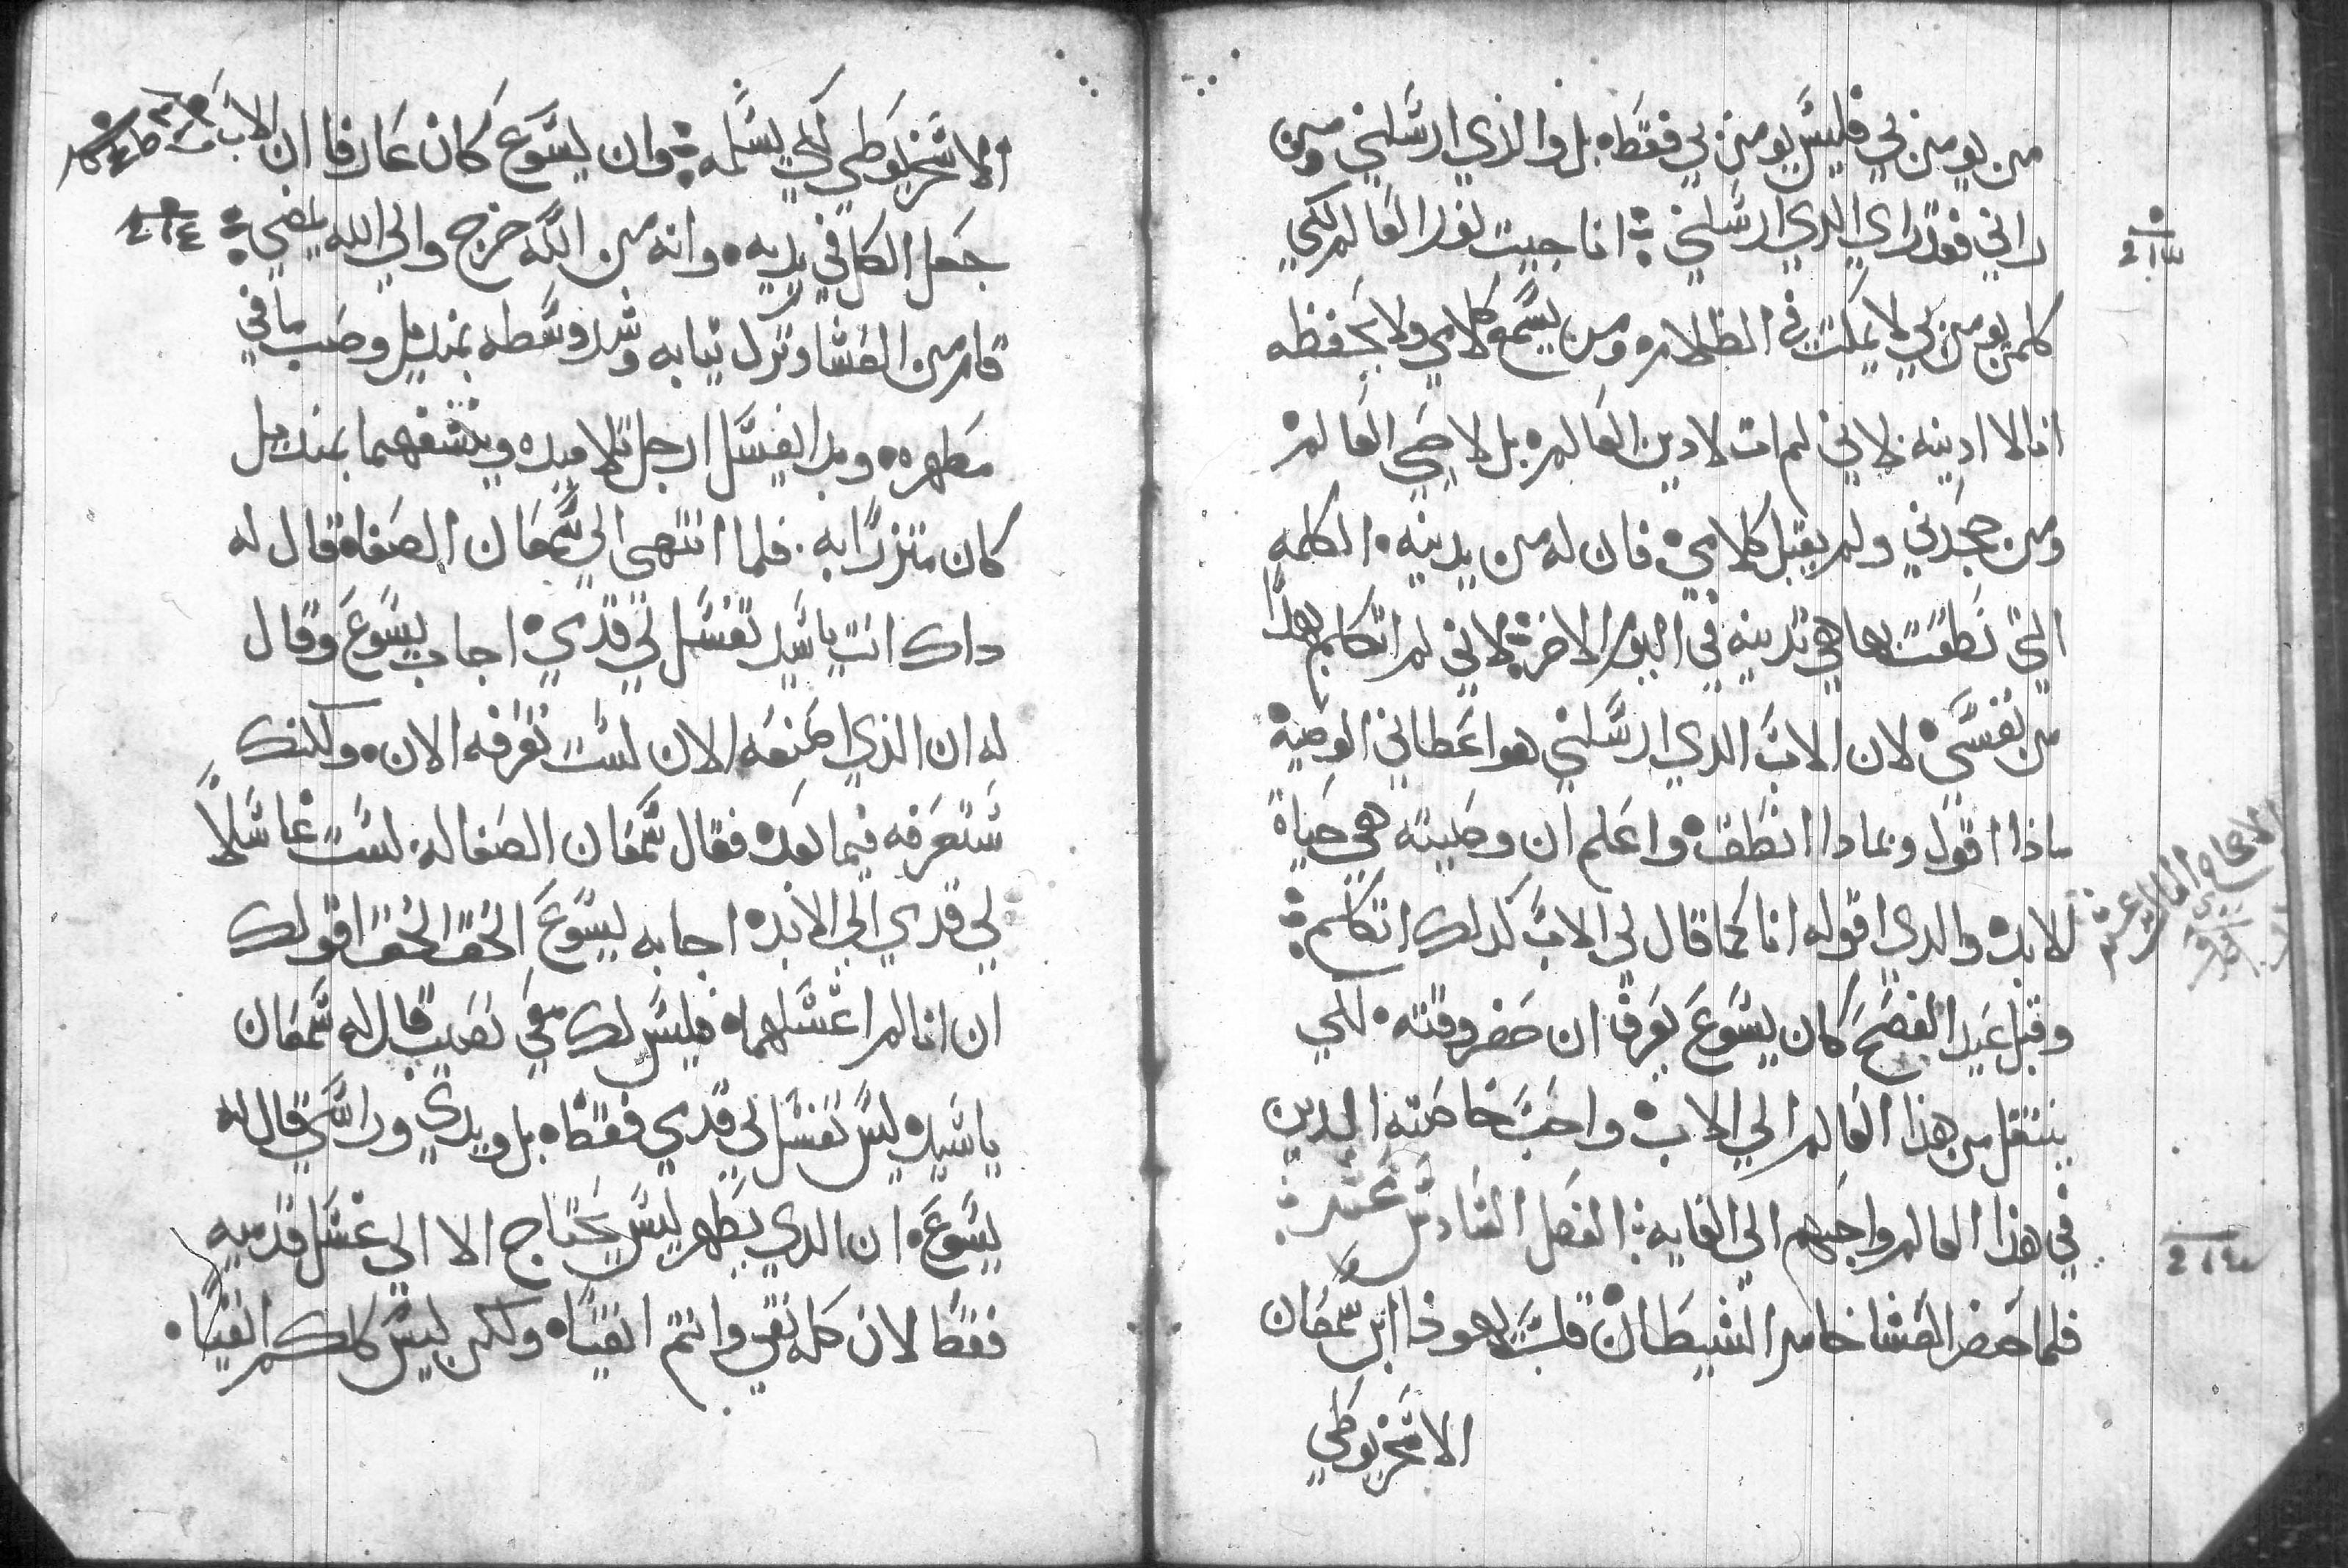 من يومن بي فليس يومن بي فقط بل والذي ارسلني ومن
راني فقد راي الدي ارسلني انا جيت نور العالم لكي
كلمن يومن بي لا يمكت في الظلام ومن يسمع كلامي ولا يحفظه
انا لا ادينه لاني لم ات لادين العالم بل لاحيي العالم
ومن جحدني ولم يقبل كلامي فان له من يدينه الكلمه
التي نطقت بها هي تدينه في اليوم الاخر لاني لم اتكلم بهدا
من نفسي لان الاب الدي ارسلني هو اعطاني الوصيه
ماذا اقول وبمادا انطق واعلم ان وصيته هي حياة
الابد والدي اقوله انا كما قال لي الاب كدلك اتكلم
وقبل عيد الفصح كان يسوع يعرف ان حضر وقته لكي
ينتقل من هذا العالم الي الاب واحب خاصته الدين
في هذا العالم واحبهم الي الغايه الفصل السادس عشر
فلما حضر العشا خامر الشيطان قلب يهوذا ابن سمعان
الاسخريوطي
الاسخريوطي لكي يسلمه وان يسوع كان عارفا ان الاب
جعل الكل في يديه وانه من الله خرج والي الله يمضي
قام من العشا وترك ثيابه وشد وسطه بمنديل وصب ما في
مطهره وبدا يغسل ارجل تلاميده وينشفهما بمنديل
كان متزرا به فلما انتهي الي سمعان الصفا قال له
داك انت يا سيد تغسل لي قدمي اجاب يسوع وقال
له ان الذي اصنعه الان لست تعرفه الان ولكنك
ستعرفه فيما بعد فقال سمعان الصفا له لست غاسلا
لي قدمي الي الابد اجابه يسوع الحق الحق اقول لك
ان انا لم اغسلهما فليس لك معي نصيب قال له سمعان
يا سيد ليس تغسل لي قدمي فقط بل ويدي وراسي قال له
يسوع ان الدي يطهر ليس يحتاج الا الي غسل قدميه
فقط لان كله نقي وانتم انقيا ولكن ليس كلكم انقيا